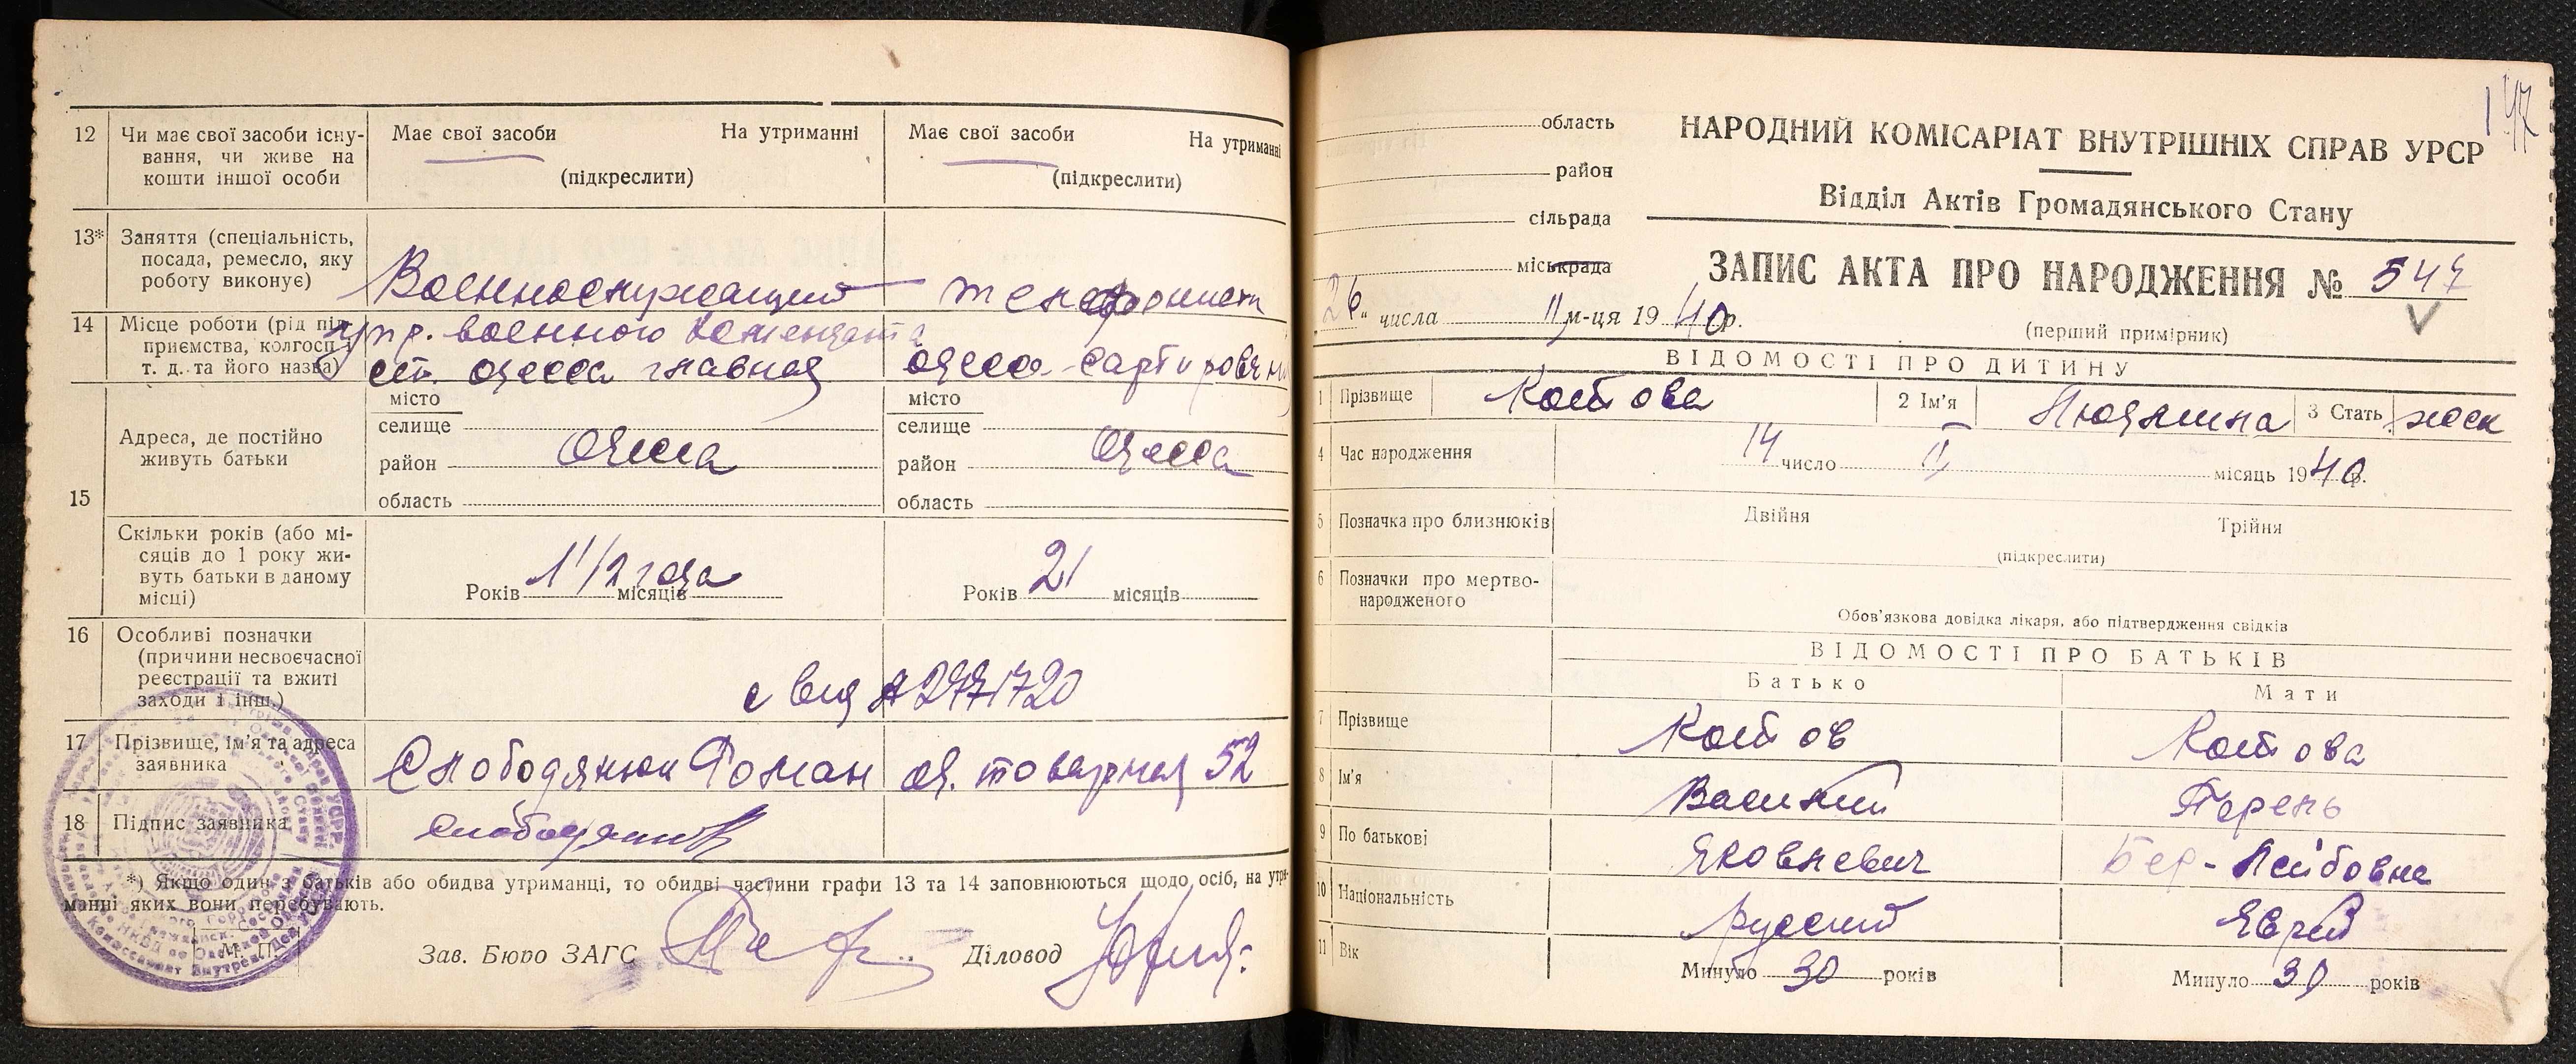 12 Чи має свої засоби існу-
вання, чи живе на
кошти іншої особи
Має свої засоби На утриманні
(підкреслити)
Має свої засоби На утриманні
(підкреслити)
13* Заняття (спеціальність,
посада, ремесло, яку
роботу виконує)
Военнослужащий
телефонистк
14 Місце роботи (рід під-
приємства, колгосп і
т. д. та його назва)
упр. военного коменданта
ст. Одесса главная
Одесса-сартировочн
15
Адреса, де постійно
живуть батьки
місто
селище
район Одесса
область
місто
селище
район Одесса
область
Скільки років (або мі-
сяців до 1 року жи-
вуть батьки в даному
місці)
Років 1 1/2 года місяців
Років 21 місяців
16 Особливі позначки
(причини несвоєчасної
реєстрації та вжиті
заходи і інш.)
17 Прізвище, ім'я та адреса
заявника
Слободянюк Роман од. товарная 52
18 Підпис заявника
*) Якщо один з батьків або обидва утриманці, то обидві частини графи 13 та 14 заповнюються щодо осіб, на утри-
манні яких вони перебувають.
М. П.
Зав. Бюро ЗАГС
Діловод
147
область
район
сільрада
міськрада
„26“ числа II м-ця 1940 р.
НАРОДНИЙ КОМІСАРІАТ ВНУТРІШНІХ СПРАВ УРСР
Відділ Актів Громадянського Стану
ЗАПИС АКТА ПРО НАРОДЖЕННЯ № 547
(перший примірник)
ВІДОМОСТІ ПРО ДИТИНУ
1 Прізвище Костова 2 Ім'я Людмила 3 Стать жоск
4 Час народження 14 число II місяць 1940 р.
5 Позначка про близнюків Двійня Трійня
(підкреслити)
6 Позначки про мертво-
народженого
Обов'язкова довідка лікаря, або підтвердження свідків
ВІДОМОСТІ ПРО БАТЬКІВ
Батько Мати
7 Прізвище Костов Костова
8 Ім'я Василий Перень
9 По батькові Яковлевич Бер-Лейбовна
10 Національність Русский Еврей
11 Вік Минуло 30 років Минуло 30 років